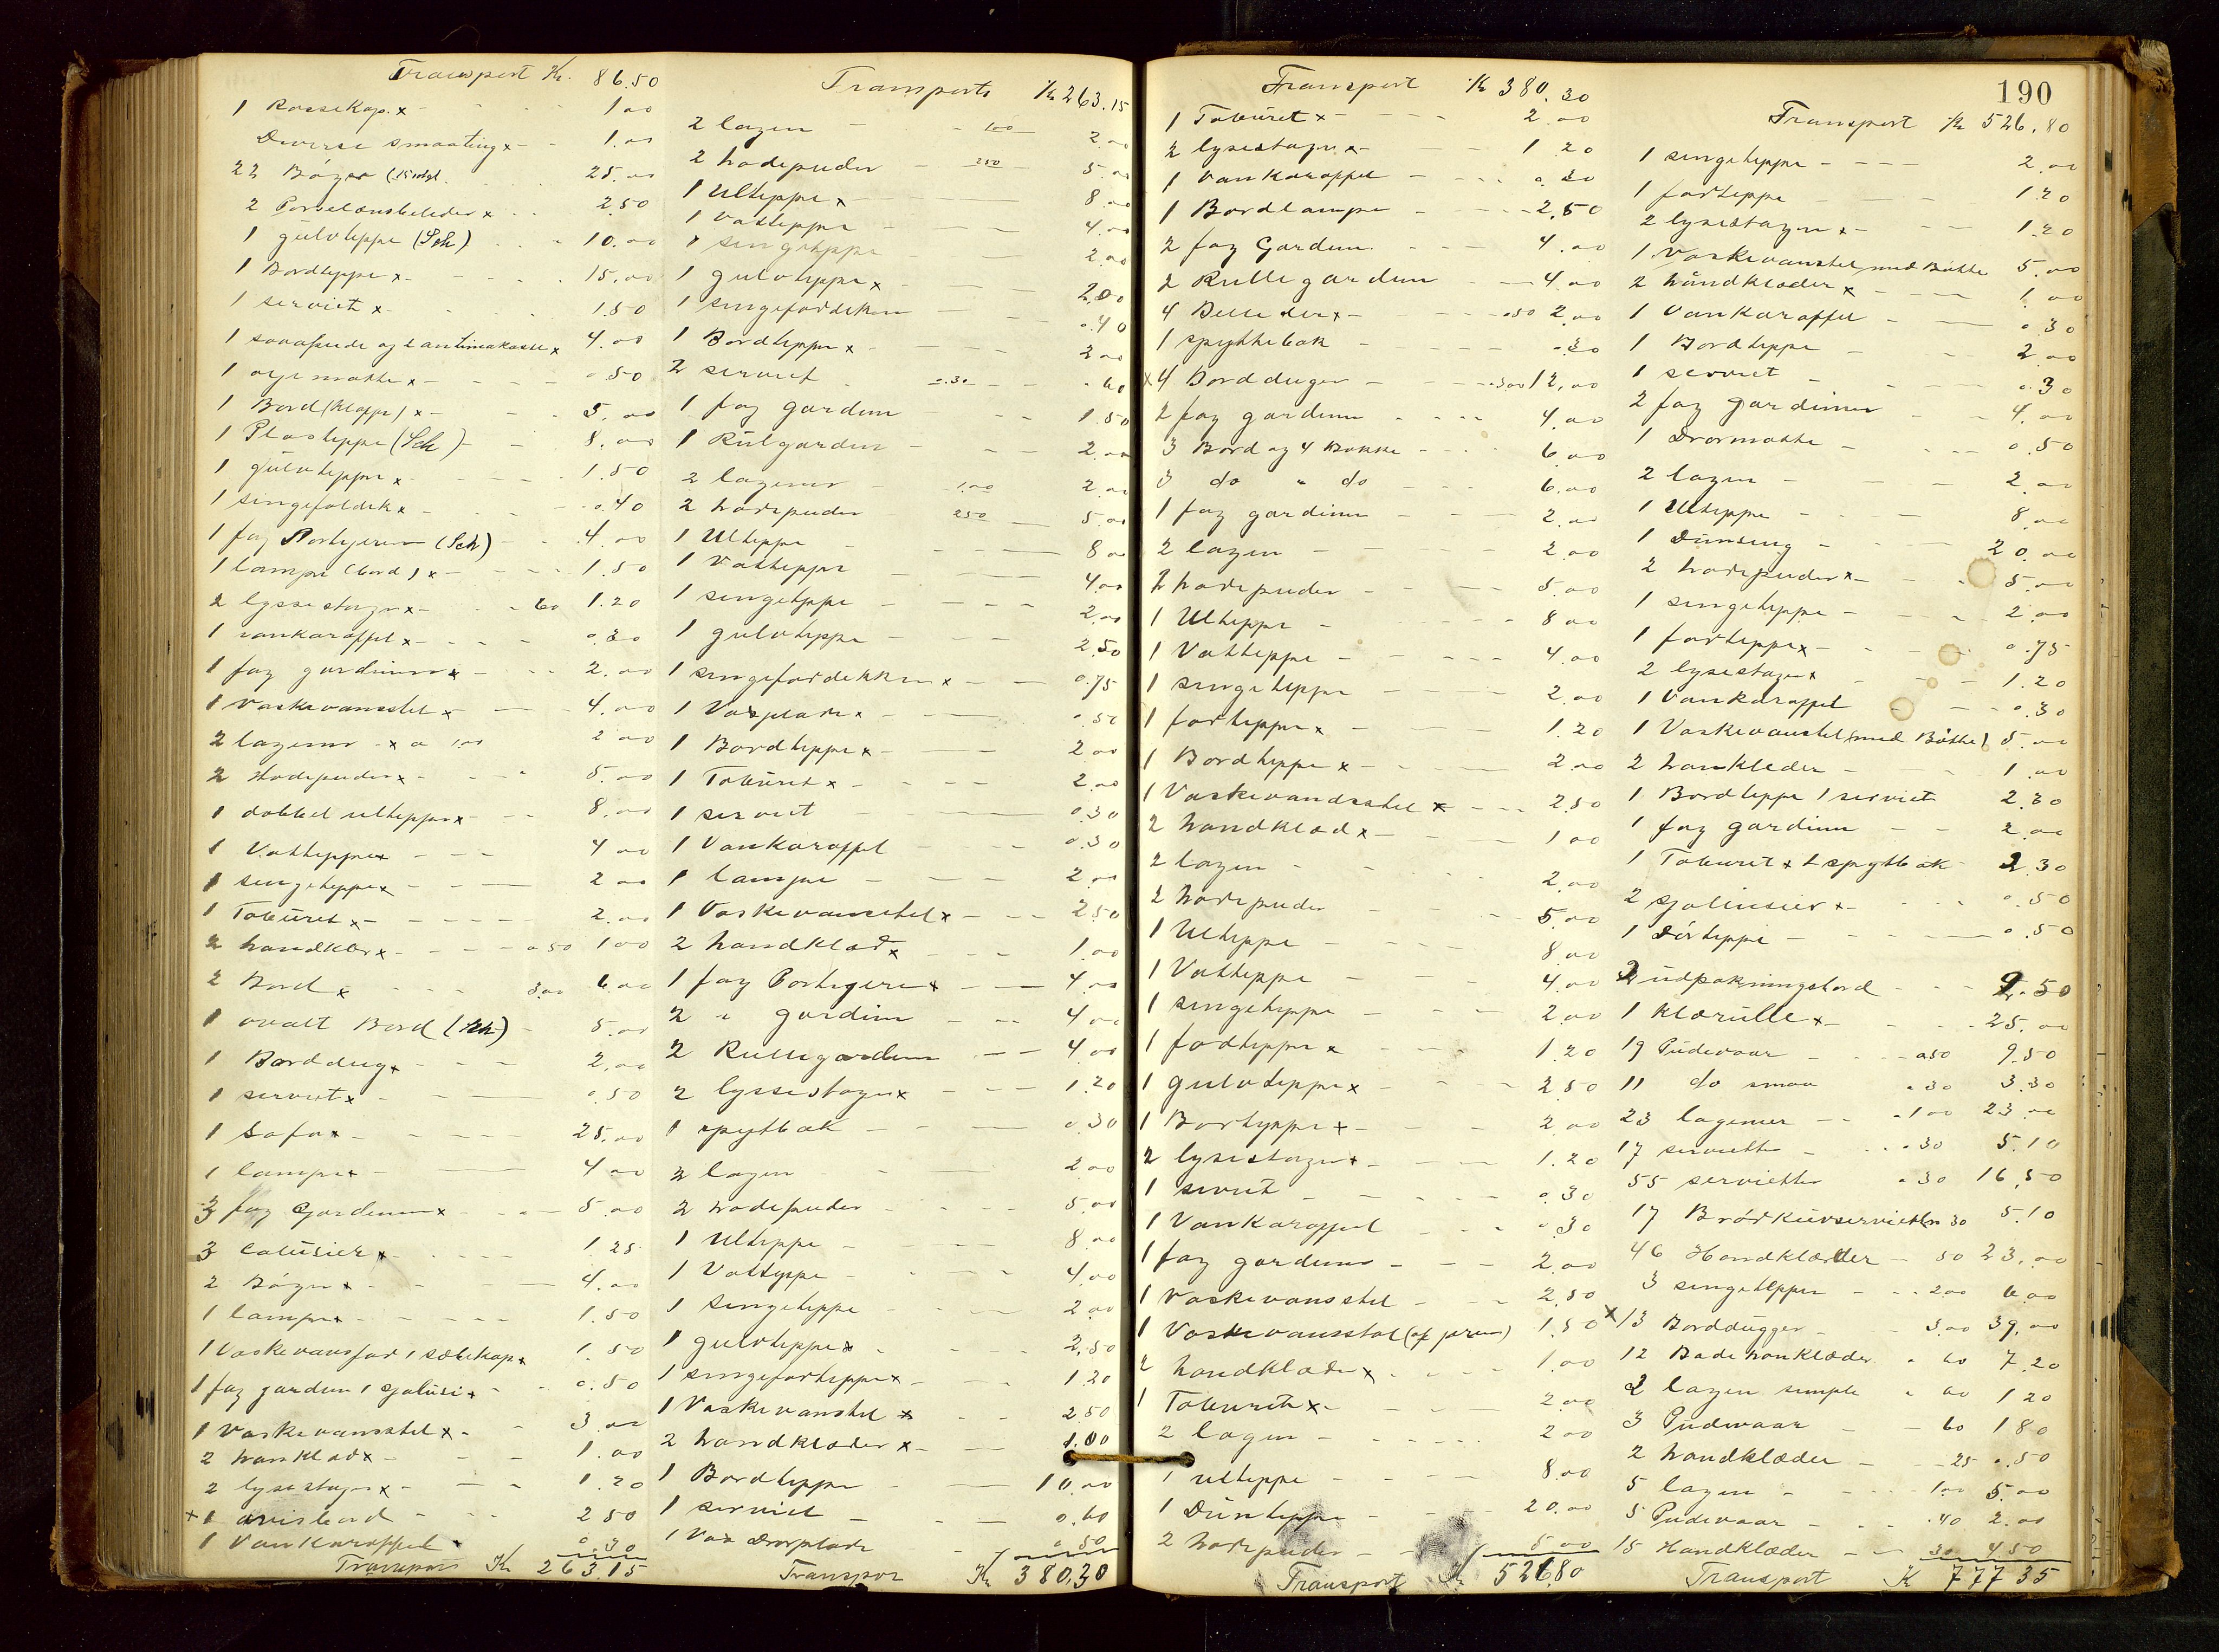 Transport Kr. 86.50
1 Rassekap. x - 1.00
Diverse smaating x - 1.00
22 Bøger 25.00
2 Porselænsbeleder x 2.50
1 gülvteppe (Sch) 10.00
1 Bordteppe x - 15.00
1 serviet x 1.50
1 sovapude og 2 antimakasse x 4.00
1 matte x - 0.50
1 Bord (Klappe) x - 5.00
1 Plasteppe (Sch) - 8.00
1 gülvteppe x 1.50
1 sengefoldek x - 0.40
1 fag Portyerer (Sch) 4.00
1 lampe (bord) x - 1.50
2 lyssestager x - 60 1.20
1 vankaraffel x - 0.30
1 fag gardiner x 2.00
1 Vaskevansstel x - 4.00
2 lagener - x a 1.00 2.00
2 Hodepuder x - 5.00
1 dobbel ulteppe x - 8.00
1 Vatteppe x - 4.00
1 sengeteppe x - 2.00
1 Tabüret x - 2.00
2 handklær x - 0.50 1.00
2 Bord x 3.00 6.00
1 ovalt Bord (Sch) - 5.00
1 Borddug x - 2.00
1 serviet x - 0.50
1 Sofa x - 25.00
1 lampe x - 4.00
3 fag Gardiner x - 5.00
3 Jalusier x - 1.25
2 Bøger x - 4.00
1 lampe x - 1.50
1 Vaskevansfad 1 sæbekop x 1.50
1 fag gardin 1 sjalusi x - 0.50
1 Vaskevansstel x - 3.00
2 hanklad x - 1.00
2 lysestager x - 1.20
x 1 avisbord - 2.50
1 Vankaraffel - 0.30
Transport Kr 263.15
Transport Kr 263.15
2 lagen - 1.00 2.00
2 hodepuder - 2.50 5.00
1 Ulteppe x 8.00
1 Vatteppe 4.00
1 sengeteppe 2.00
1 gulvteppe x 2.00
1 sengefordeken 0.40
1 Bordteppe x 2.00
2 serviet 0.30 - .60
1 fag gardin 1.50
1 Rülgardin - 2.00
2 lagener 1.00 2.00
2 hodepuder 2.50 5.00
1 Ulteppe 8.00
1 Vatteppe 4.00
1 sengeteppe 2.00
1 gulvteppe 2.50
1 sengefordekken x - 0.75
1 Vasplade x - 0.50
1 Bordteppe x - 2.00
1 Tabüret x - 2.00
1 serviet 0.30
1 Vankaraffel 0.30
1 lampe - 2.00
1 Vaskevansstel x - 2.50
2 handklad x 1.00
1 fag Portigere x 4.00
2 " gardin 4.00
2 Rullegardin 4.00
2 lyssestager x 1.20
1 spytbak - 0.30
2 lagen 2.00
2 hodepuder 5.00
1 Ulteppe - 8.00
1 Vatteppe - 4.00
1 Sengeteppe 2.00
1 gulvteppe x 2.50
1 sengeforteppe x 1.20
1 Vaskevanstel x 2.50
2 handklæder x - 1.00
1 Bordteppe 10.00
1 serviet - 0.60
1 Vas Dorplade 0.50
Transpor Kr 380.30
Transport Kr 380.30
1 Tabüret x - 2.00
2 lysestager x - 1.20
1 Vankaraffel - 0.30
1 Bordlampe - 2.50
2 fag Gardin 4.00
2 Rullegardin 4.00
4 Beleder x - 0.50 2.00
1 spyttebak - 0.30
x 4 Bordduger - 3.00 12.00
2 fag gardiner 4.00
3 Bord og 4 Bukke - 6.00
3 do " do 6.00
1 fag gardiner 2.00
2 lagen - 2.00
2 hodepuder - 5.00
1 Ulteppe - 8.00
1 Vatteppe - 4.00
1 sengeteppe 2.00
1 forteppe x 1.20
1 Bordteppe x - 2.00
1 Vaskevandsstel x - 2.50
2 handklæd x - 1.00
2 lagen - 2.00
2 hodepuder 5.00
1 Ulteppe 8.00
1 Vatteppe 4.00
1 sengeteppe 2.00
1 fodteppe x 1.20
1 gulvteppe x 2.50
1 Borteppe x - 2.00
2 lysestager x - 1.20
1 serviet - 0.30
1 Vankaraffel 0.30
1 fag gardiner - 2.00
1 Vaskevansstel - 2.50
1 Vaskevansstel (af jern) 1.50
2 handklæder x 1.00
1 Taburet x - 2.00
2 lagen - 2.00
1 ulteppe - 8.00
1 Dünteppe 20.00
2 hodepuder - 5.00
Transport Kr 526.80
190
Transport Kr 526.80
1 sengeteppe - 2.00
1 forteppe 1.20
2 lysestager x - 1.20
1 Vaskevanstel med Bøtte 5.00
2 håndklæder x 1.00
1 Vankaraffel 0.30
1 Bordteppe 2.00
1 serviet 0.30
2 fag gardiner 4.00
1 Dormatte - 0.50
2 lagen - 2.00
1 Ulteppe 8.00
1 Dünseng - 20.00
2 hodepuder x - 5.00
1 sengeteppe - 2.00
1 forteppe x - 0.75
2 lysestager x 1.20
1 Vankaraffel 0.30
1 Vaskevanstel (med Bøtte) 5.00
2 hankleder - 1.00
1 Bordteppe 1 serviet 2.30
1 fag gardiner 2.00
1 Taburet x 1 spytbak 2.30
2 sjalusier x - 0.50
1 Dørteppe - 0.50
2 üdpakningsbord 9.50
1 Klærülle x - 25.00
19 Püdevaar - 0.50 9.50
11 do smaa .30 3.30
23 lagener - 1.00 23.00
17 servietter - .30 5.10
55 servietter .30 16.50
17 Brødkürvservietter 30 5.10
46 Handklæder - 50 23.00
3 sengetepper 2.00 6.00
x 13 Borddügger - 3.00 39.00
12 Bade hanklæder 60 7.20
2 lagen simple 60 1.20
3 Püdevaar - 60 1.80
2 handklæder - 25 0.50
5 lagen 1.00 5.00
5 Püdevaar - .40 2.00
15 Handklæder - 30 4.50
Transport K 777 35